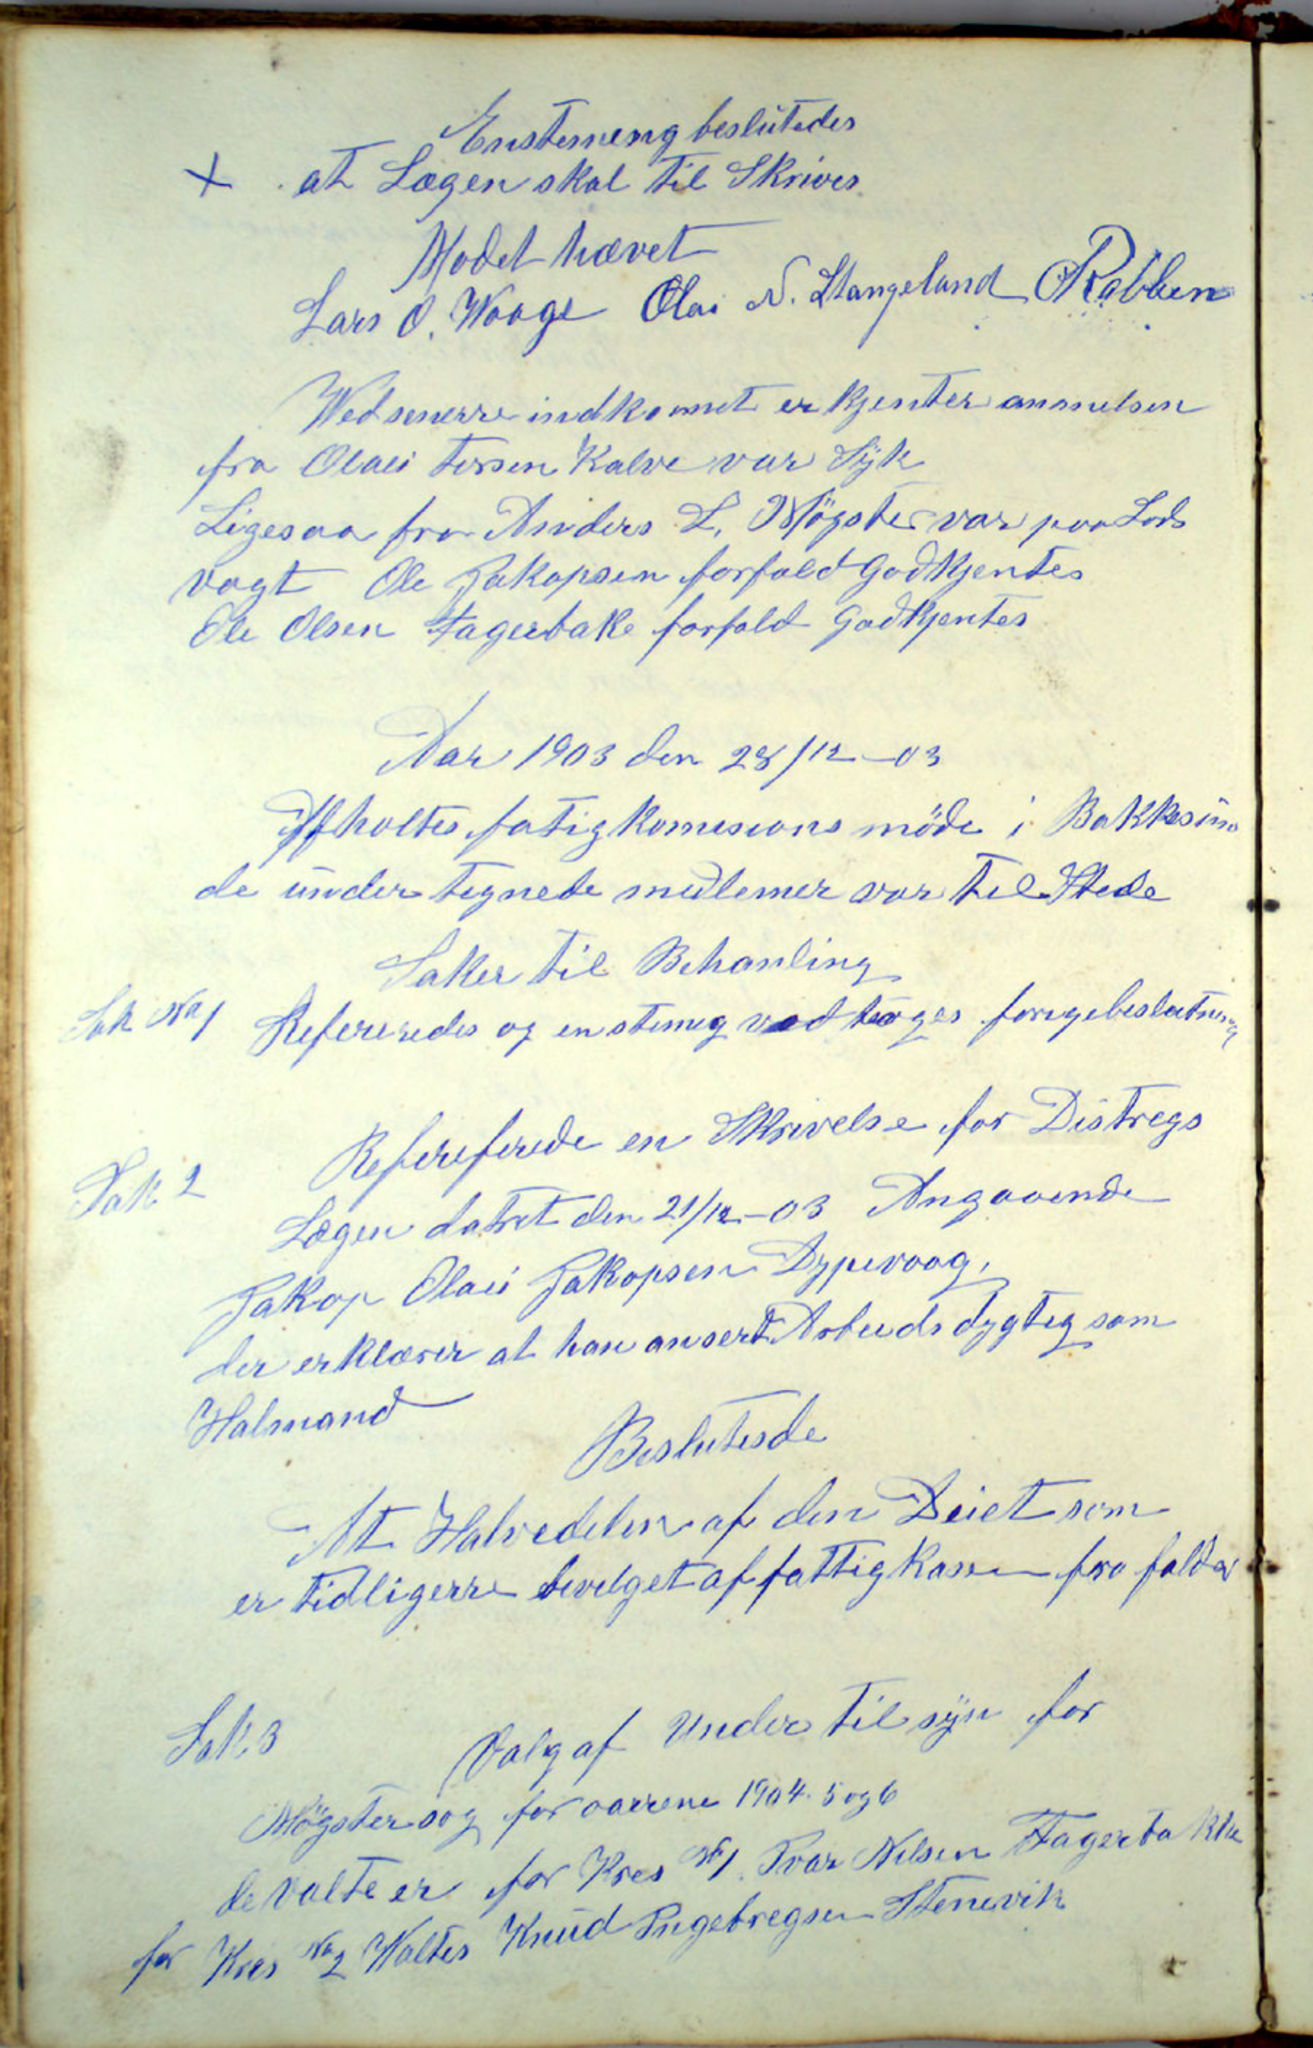 Enstemeng beslutedes
X at Lægen skal til Skrives
Modet hævet
Lars O. Waage Olai N. Stangeland Rabben
Wed senerre indkomet er kjenter anmelsen
fra Olaus Kalve var Syk
Ligesaa fra Anders L. Mögster var paa Lods
vagt Ole Jakopsen forfald Godkjentes
Ole Olsen Fagerbake forfald Godkjentes
Aar 1903 den 28/12-03
Affholtes fatigkomisions möde i Bakkesun
de undertegnede medlemer var til Stede
Saker til Behanling
Sak No 1 Refereredes og enstemig vedtoges forigebeslutning
Sak 2 Refereferede en Skrivelse for Distregs
Lægen datret den 21/12-03 Angaaende
Jakop Olai Jakopsen Dypevaag,
der erklærer at han ansert Arbeidsdygtig som
Halmand
Beslutesde
At Halvedelen af den Deiet som
er tidligerre bevelget af fattigkassen fra falder
Sak 3 Valg af Under tilsyn for
Mögster sog for aarene 1904. 5 og 6
de valte er for Kres No 1. Ivar Nelsen Fagerbakke
for Kres No 2 Waltes Knud Ingebregsen Stenevik